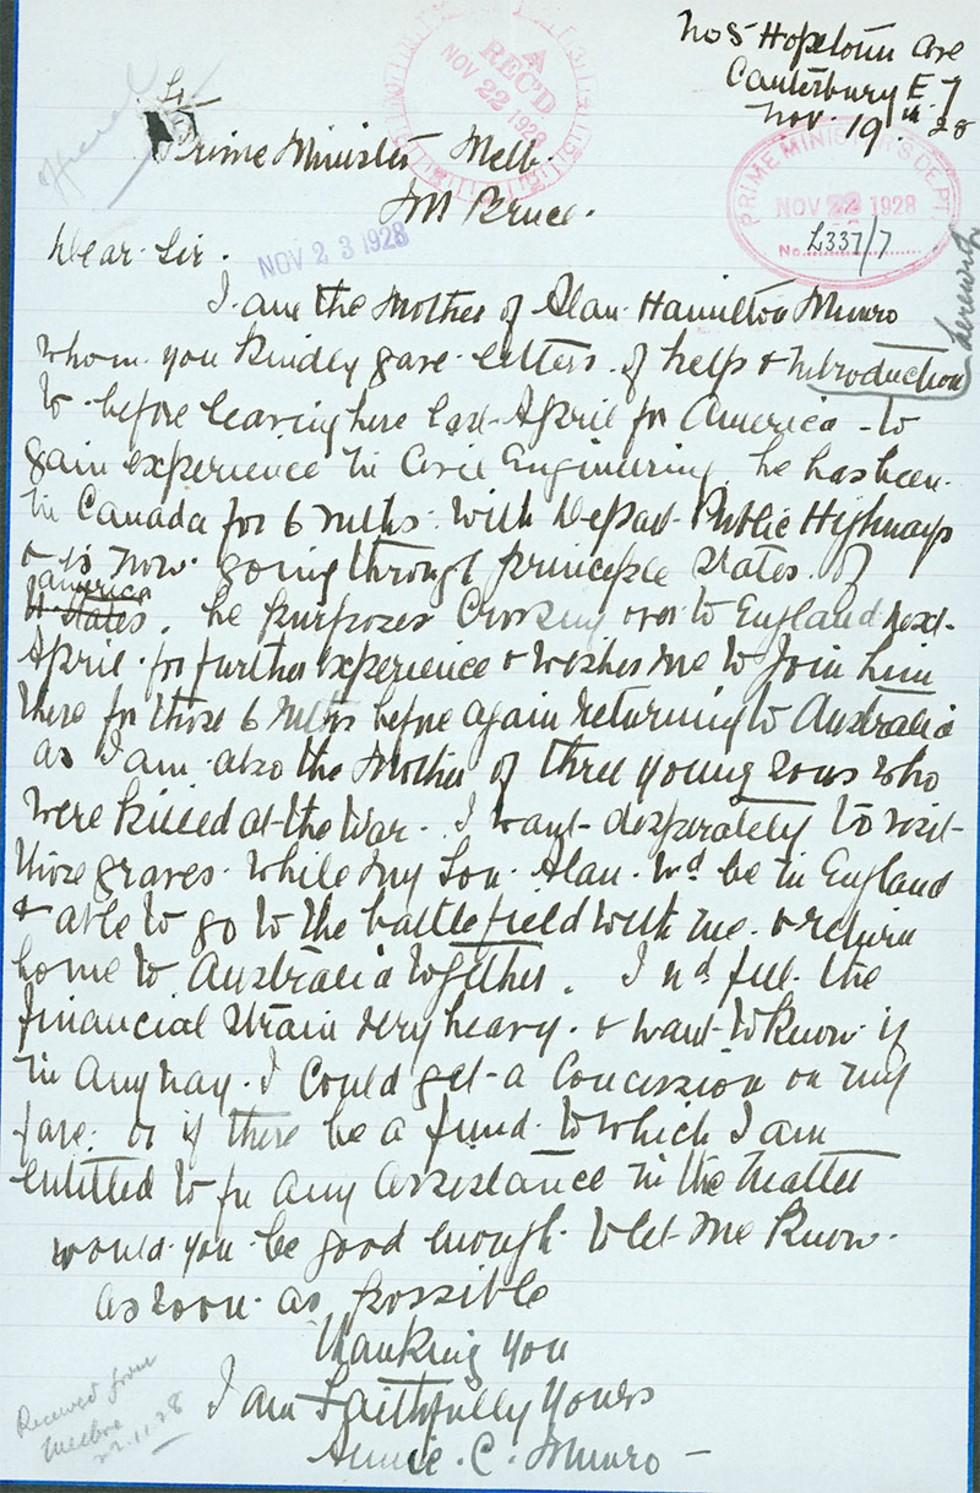 No 5 Hopetoun Ave
Canterbury E 7
Nov. 19th 28
A
REC'D
NOV 22 1928
To
Prime Minister Melb.
Mr Bruce.
PRIME MINISTER'S DEPT
NOV 22 1928
No. L337/7
NOV 23 1928
Dear Sir.
I am the Mother of Alan Hamilton Munro
whom you kindly gave letters of help & Introduction
to before leaving here last April for America - to
gain experience in Civil Engineering he has been
in Canada for 6 mths with Depart Public Highways
& is now going through principle States of
America
U States. he purposes Crossing over to England next
April for further experience & wishes me to Join him
there for those 6 Mths before again returning to Australia
as I am also the Mother of three young sons who
were killed at the War. I want desperately to visit
those graves while my Son Alan wd be in England
& able to go to the battlefield with me & return
home to Australia together. I wd feel the
financial strain very heavy & want to know if
in any way I could get a Concession on my
fare: or if there be a fund to which I am
entitled to for any assistance in the Matter
would you be good enough to let me know
as soon as possible
Thanking you
I am Faithfully Yours
Annie. C. Munro
Received from
Melbne
22.11.28